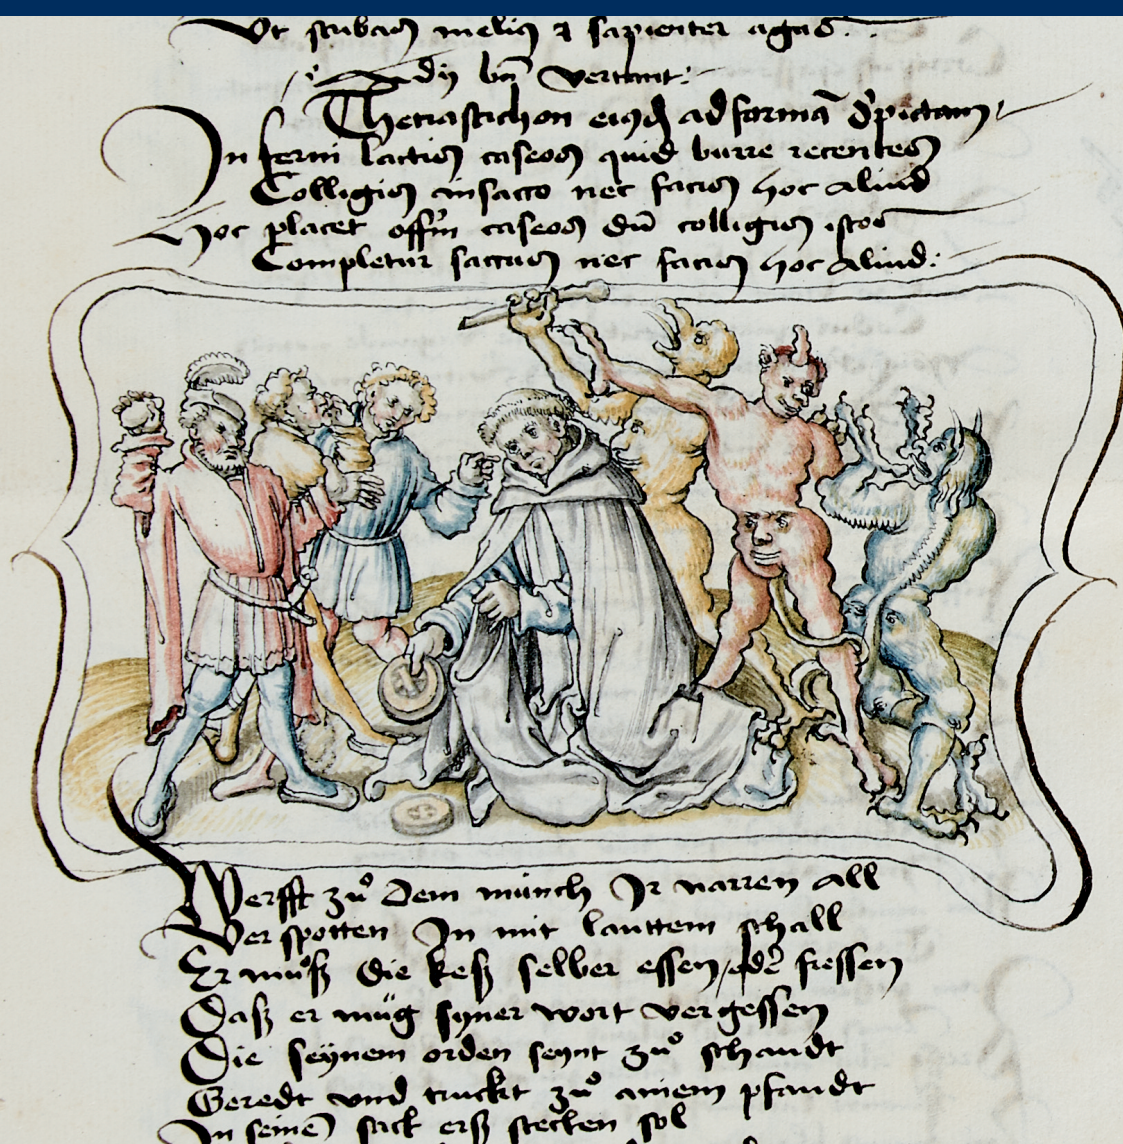 Vt scribam melius & sapienter agas.
Ad bm vertant:
Thetrastichon eiusdem ad formā dpictam
Inferni lactis caseos quid burre recentes
Colligis insacco nec facis hoc aliud
Hoc placet offm caseos dū colligis istos
Completur saccus nec facis hoc aliud:
Werfft zů dem münch Ir narren all
Verspotten In mit lauttem schall
Er můß die keß selber essen/oder fressen
Daß er müg syner wort vergessen
Die seÿnem orden seynt zů schandt
Geredt vnd truckt zů ainem pfandt
In seinē sack erß stecken sol